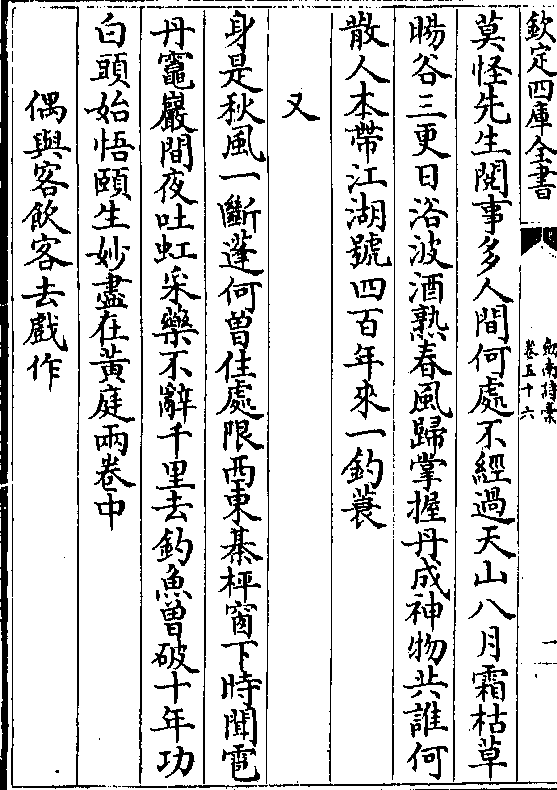 欽定四庫全書
劍南詩稾
卷五十六
一
莫怪先生閱事多人間何處不經過天山八月霜枯草
暘谷三更日浴波酒熟春風歸掌握丹成神物共誰何
散人本帶江湖號四百年來一釣蓑
又
身是秋風一斷蓬何曾住處限西東棊枰窗下時聞雹
丹竈巖間夜吐虹采藥不辭千里去釣魚曽破十年功
白頭始悟頤生妙盡在黃庭兩卷中
偶與客飲客去戲作